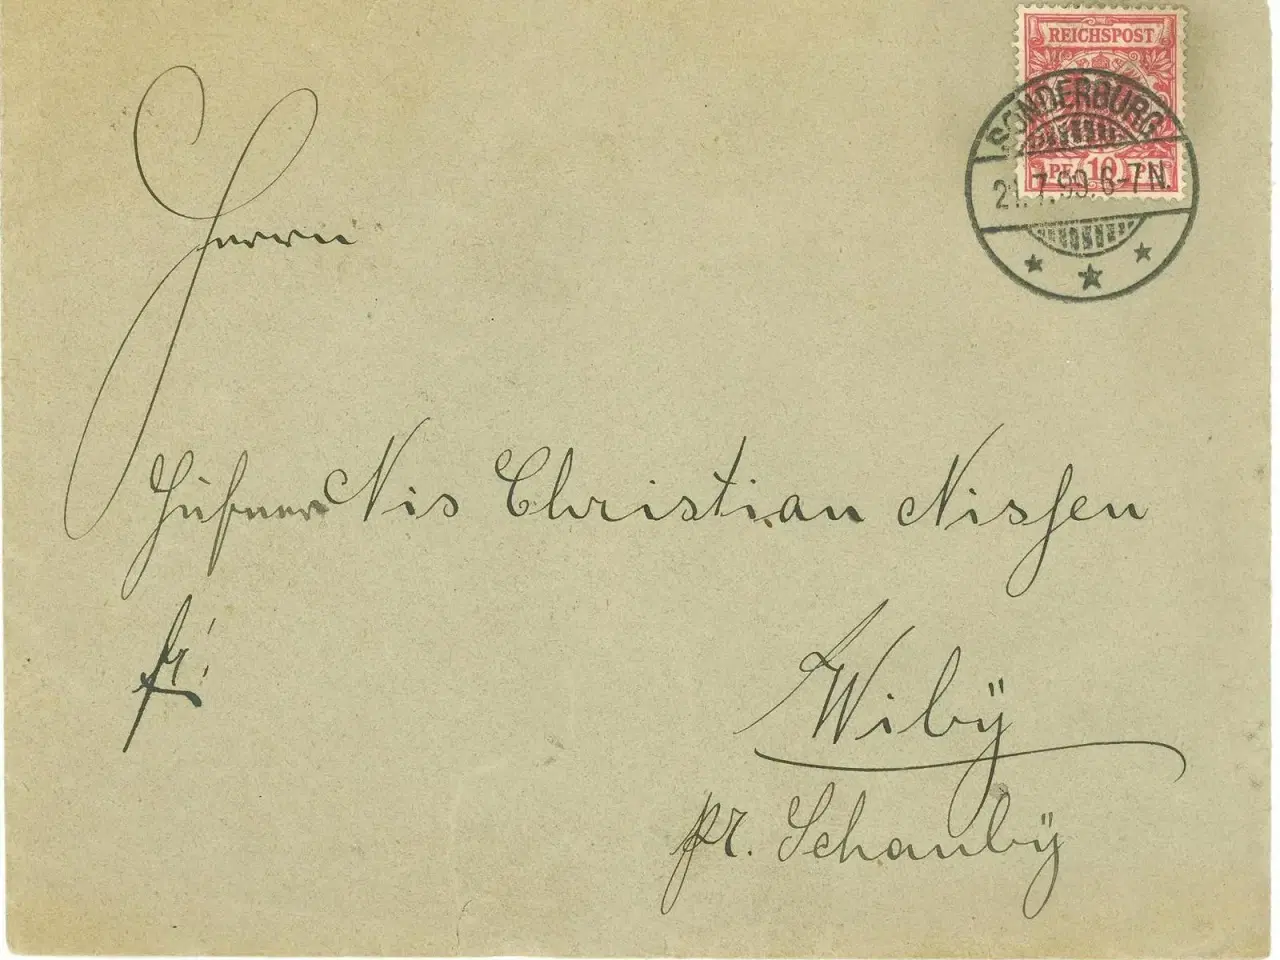 REICHSPOST
PF 10 PF
SONDERBURG
21.7.99.6-7N.
Herrn
Hufner Nis Christian Nissen
fr!
Wibÿ
pr. Schaubÿ